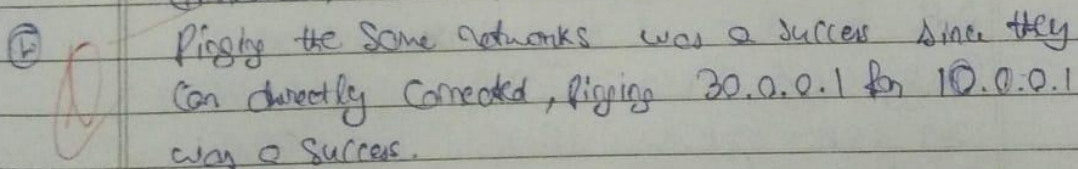 ⓑ Pinging the same networks was a success since they
can directly connected, Pinging 30.0.0.1 for 10.0.0.1
was a success.